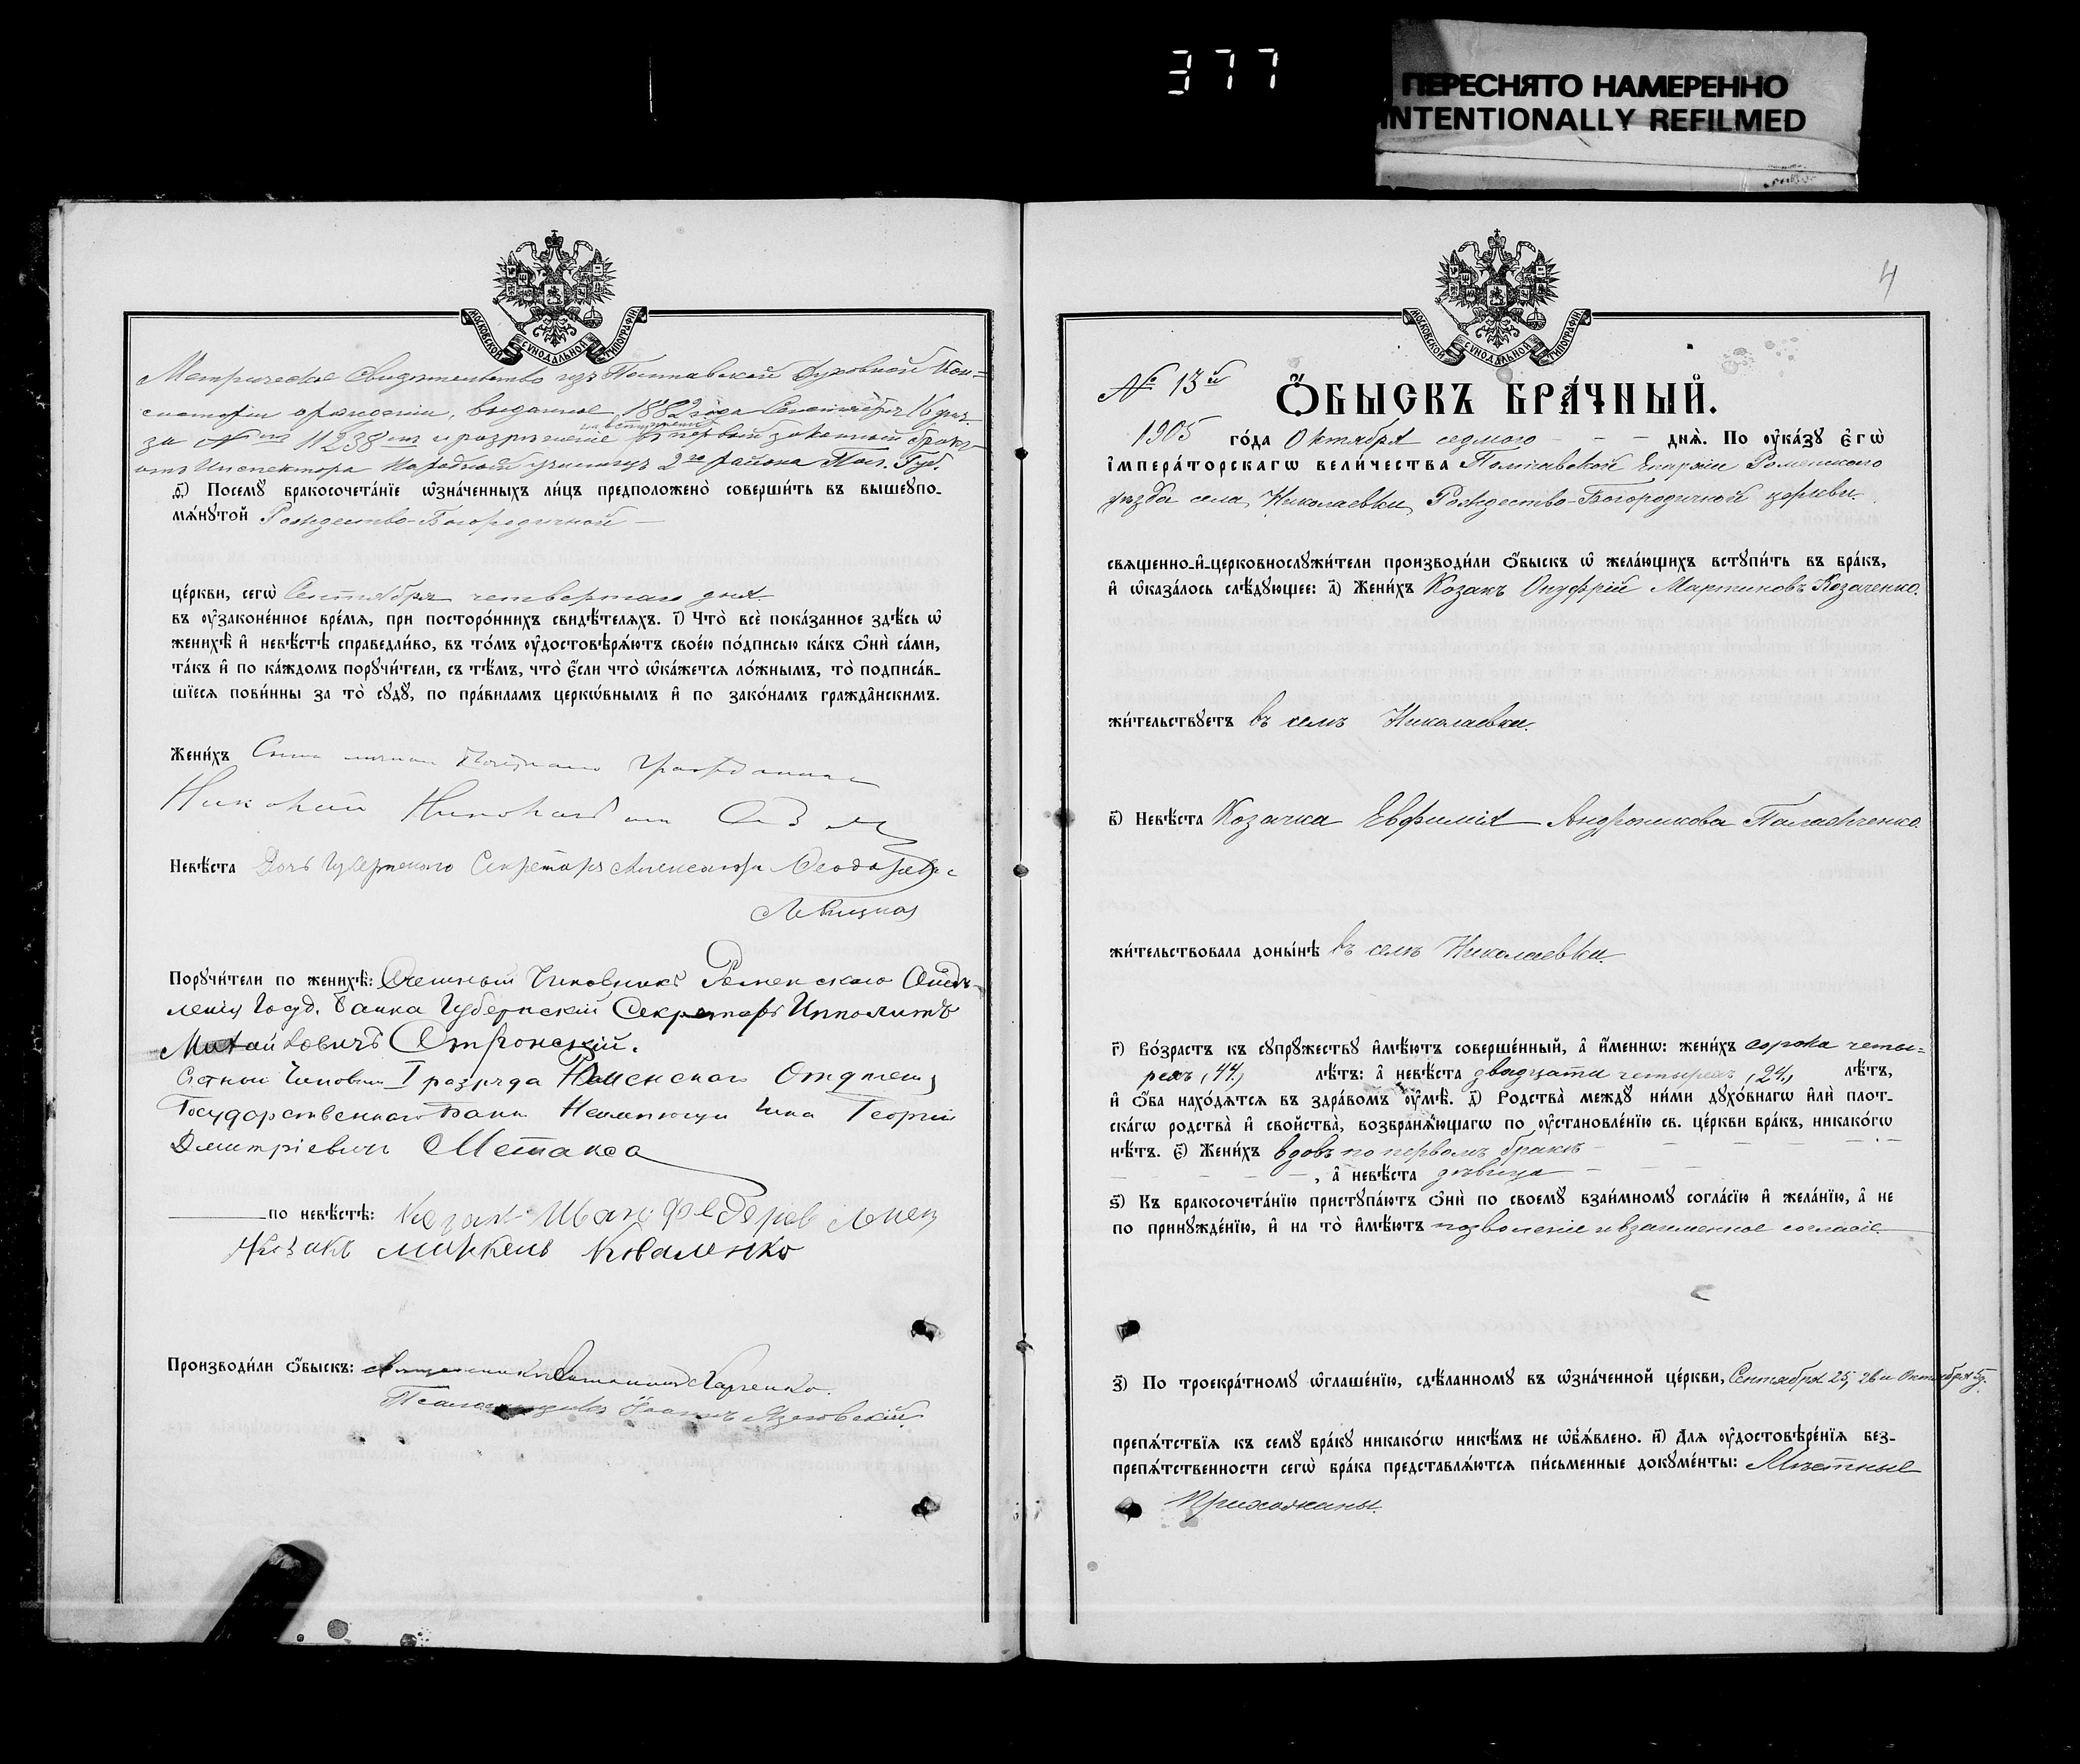 377
ПЕРЕСНЯТО НАМЕРЕННО
INTENTIONALLY REFILMED
МОСКОВСКОЙ СѴНОДАЛЬНОЙ ТИПОГРАФІИ
Метрическое Свидѣтельство изъ Полтавской Духовной Кон=
систоріи о рожденіи, выданное 1882 года Сентября 16 дня
за № 11238 и разрѣшеніе на вступленіе въ первый законный бракъ
отъ Инспектора Народныхъ училищъ 2го района Пол. Губ.
ѳ҃) Посемꙋ бракосочета́нїе ѡ҆зна́ченныхъ ли́цъ предположено̀ соверши́ть въ вышеꙋпо-
мѧ́нꙋтой Рождество-Богородичной
це́ркви, сегѡ̀ Сентября четвертаго дня
въ ᲂу҆зако́ненное вре́мѧ, при посторо́ннихъ свидѣ́телѧхъ. і҃) Что̀ всѐ пока́занное здѣ́сь ѡ҆
женихѣ̀ и҆ невѣ́стѣ справедли́во, въ то́мъ ᲂу҆достовѣрѧ́ютъ свое́ю по́дписью ка́къ ѻ҆нѝ са́ми,
та́къ и҆ по ка́ждомъ порꙋчи́тели, съ тѣ́мъ, что̀ є҆́сли что̀ ѡ҆ка́жетсѧ ло́жнымъ, то̀ подписа́в-
шїесѧ пови́нны за то̀ сꙋдꙋ̀, по пра́виламъ церкѡ́внымъ и҆ по зако́намъ гражда́нскимъ.
Жени́хъ Сынъ личнаго Почетнаго Гражданина
Николай Николаевичъ
Невѣ́ста Дочь Губернскаго Секретаря Александра Ѳеодоровна
Левицкая
Порꙋчи́тели по женихѣ̀: Счетный Чиновникъ Роменскаго Отдѣ-
ленія Госуд. Банка Губернскій Секретарь Ипполитъ
Михайловичъ Отронскій.
Счетный Чиновникъ I разряда Роменскаго Отдѣленія
Государственнаго Банка Неимеющій Чина Георгій
Дмитріевичъ Метакса
по невѣ́стѣ: Козакъ Иванъ Федоровъ
Козакъ Маркелъ Коваленко
Производи́ли ѻ҆́быскъ: Священникъ Харченко.
Псаломщикъ Іоаннъ Язловскій.
4
МОСКОВСКОЙ СѴНОДАЛЬНОЙ ТИПОГРАФІИ
№ 13й
Ѻ҆́БЫСКЪ БРА́ЧНЫЙ.
1905 го́да Октября седмого - - - днѧ̀. По ᲂу҆ка́зꙋ є҆гѡ̀
і҆мпера́торскагѡ вели́чества Полтавской Епархіи Роменскаго
уѣзда села Николаевки, Рождество-Богородичной церкви.
свѧщенно-и҆-церковнослꙋжи́тели производи́ли ѻ҆́быскъ ѡ҆ жела́ющихъ встꙋпи́ть въ бра́къ,
и҆ ѡ҆каза́лось слѣ́дꙋющее: а҃) Жени́хъ Козакъ Онуфрій Мартиновъ Козаченко.
жи́тельствꙋетъ въ селѣ Николаевки.
в҃) Невѣ́ста Козачка Евфимія Андроникова Палажченко.
жи́тельствовала доны́нѣ въ селѣ Николаевки.
г҃) Во́зрастъ къ сꙋпрꙋ́жествꙋ и҆мѣ́ютъ соверше́нный, а҆ и҆́меннѡ: жени́хъ сорока четы=
рехъ (44) лѣ́тъ: а҆ невѣ́ста двадцати четырехъ (24) лѣ́тъ,
и҆ ѻ҆́ба нахо́дѧтсѧ въ здра́вомъ ᲂу҆мѣ̀. д҃) Родства̀ междꙋ̀ ни́ми дꙋхо́внагѡ и҆лѝ плот-
ска́гѡ родства̀ и҆ свойства̀, возбранѧ́ющагѡ по ᲂу҆становле́нїю св. це́ркви бра́къ, никако́гѡ
нѣ́тъ. є҃) Жени́хъ вдовъ по первомъ бракѣ - - - -
- - - - , а҆ невѣ́ста дѣвица - - -
ѕ҃) Къ бракосочета́нїю пристꙋпа́ютъ ѻ҆нѝ по своемꙋ̀ взаи́мномꙋ согла́сїю и҆ жела́нїю, а҆ не
по принꙋжде́нїю, и҆ на то̀ и҆мѣ́ютъ позволеніе и взаимное согласіе.
з҃) По троекра́тномꙋ ѡ҆глаше́нїю, сдѣ́ланномꙋ въ ѡ҆зна́ченной це́ркви, Сентября 25, 26 и Октября
препѧ́тствїѧ къ семꙋ̀ бра́кꙋ никако́гѡ никѣ́мъ не ѡ҆б̾ѧ́влено. и҃) Длѧ ᲂу҆достовѣре́нїѧ без-
препѧ́тственности сегѡ̀ бра́ка представлѧ́ютсѧ пи́сьменные докꙋме́нты: Мѣстные
Прихожаны.